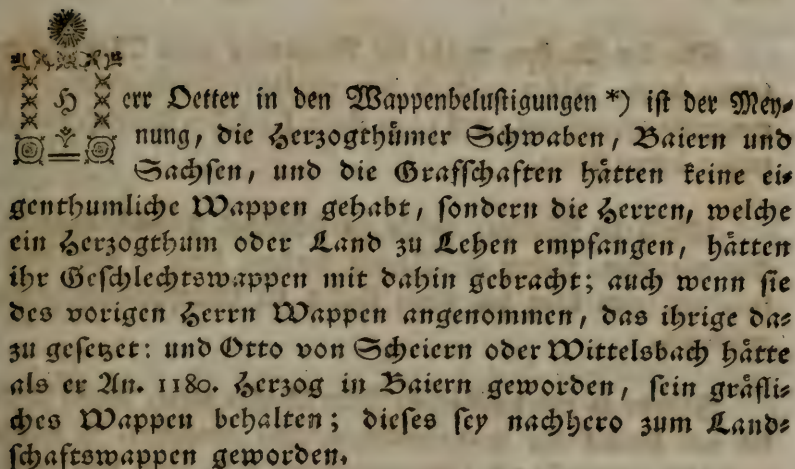 Herr Oetter in den Wappenbelustigungen *) ist der Mey-
nung, die Herzogthümer Schwaben, Baiern und
Sachsen, und die Grafschaften hätten keine ei-
genthumliche Wappen gehabt, sondern die Herren, welche
ein Herzogthum oder Land zu Lehen empfangen, hätten
ihr Geschlechtswappen mit dahin gebracht; auch wenn sie
des vorigen Herrn Wappen angenommen, das ihrige da-
zu gesetzet: und Otto von Scheiern oder Wittelsbach hätte
als er An. 1180. Herzog in Baiern geworden, sein gräfli-
ches Wappen behalten; dieses sey nachhero zum Land-
schaftswappen geworden.